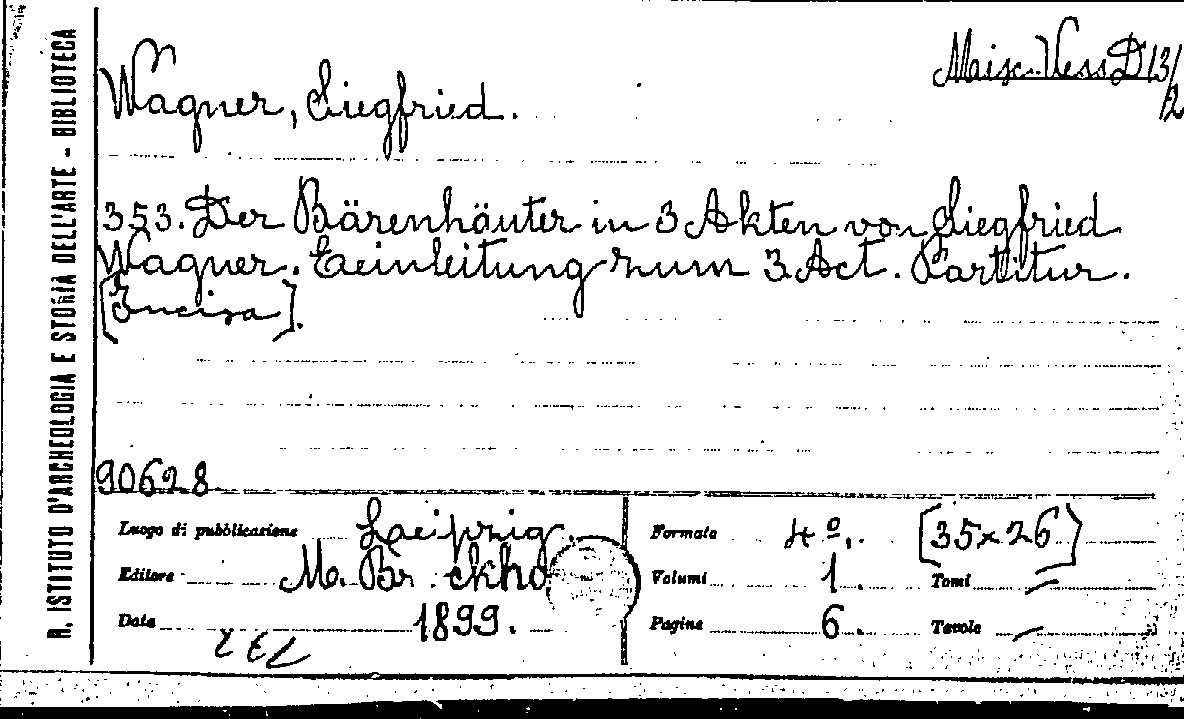 R. ISTITUTO D'ARCHEOLOGIA E STORIA DELL'ARTE - BIBLIOTECA
Wagner, Siegfried.
353. Der Bärenhäuter in 3 Akten von Siegfried
Wagner. Eeinleitung zum 3 Act. Partitur.
[Incisa].
90628
Luogo di pubblicazione Leipzig.
Editore M. Br
Data 1899.
Formato 4º. [35×26]
Volumi 1. Tomi —
Pagine 6. Tavole —